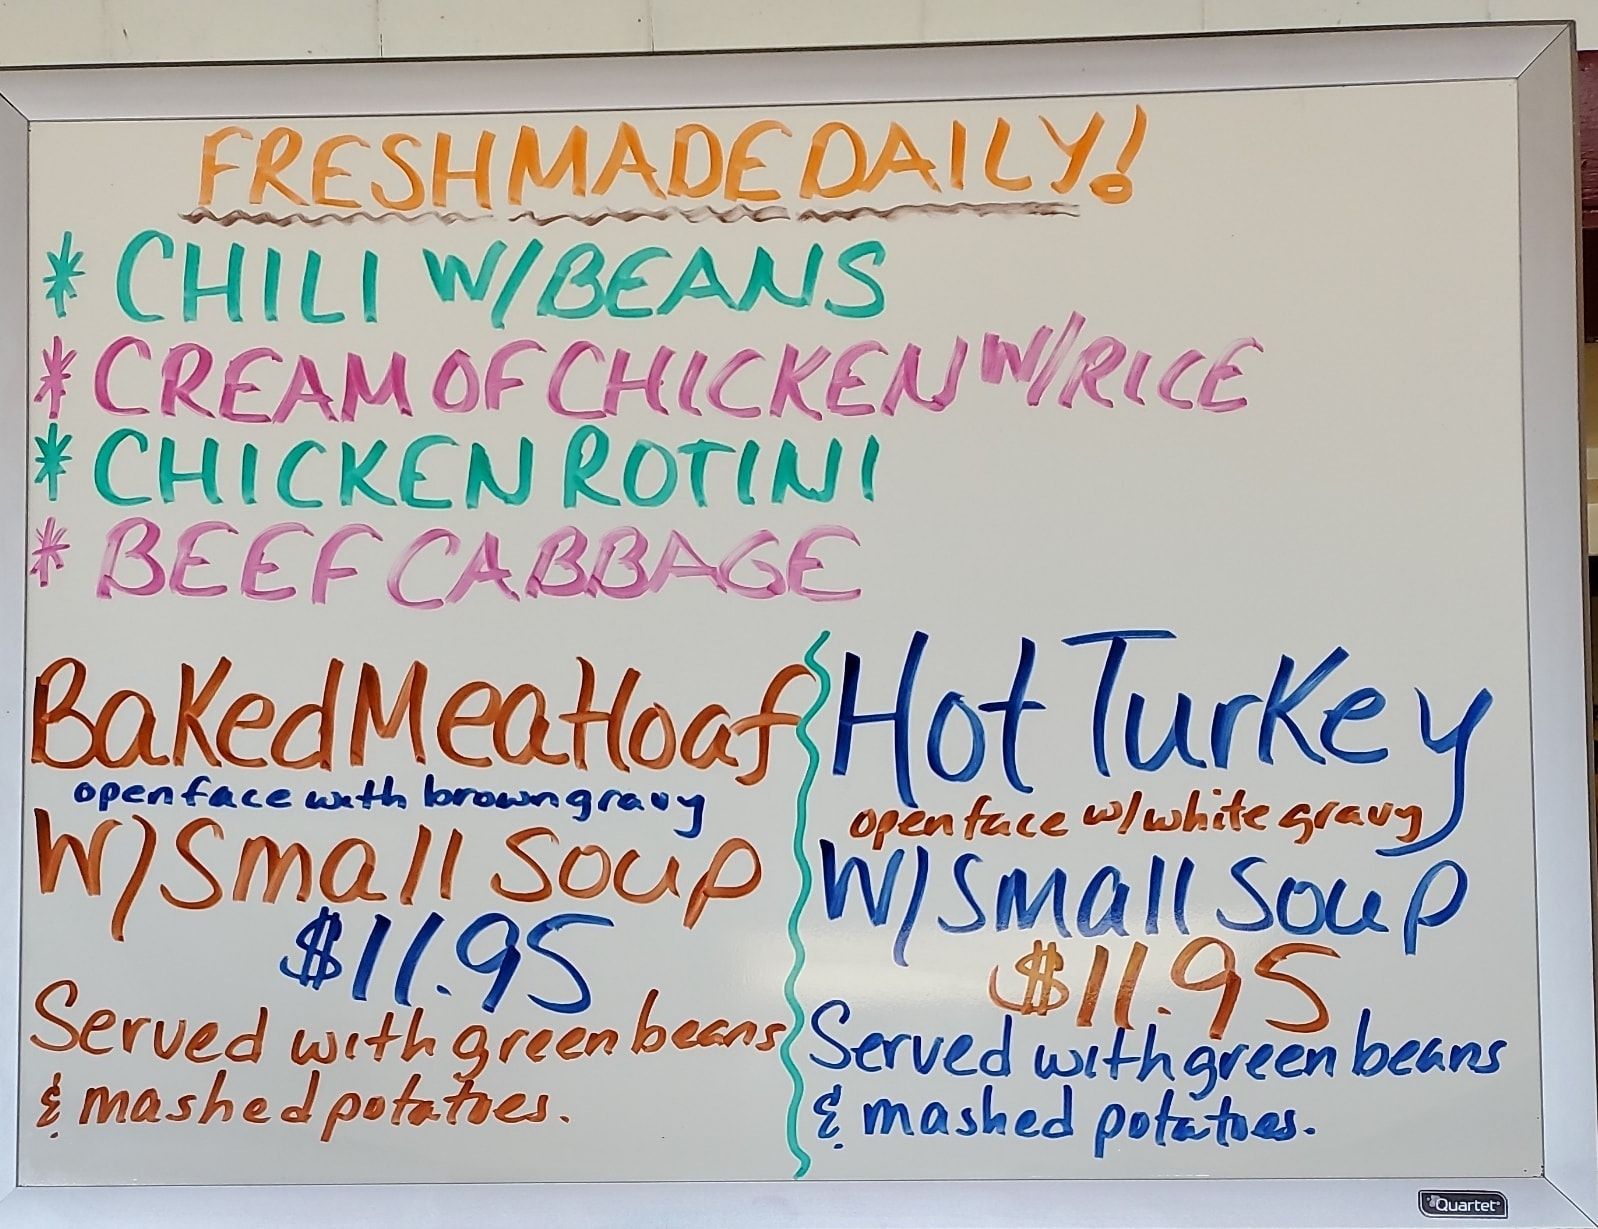 FRESH MADE DAILY!
* CHILI W/BEANS
* CREAM OF CHICKEN W/RICE
* CHICKEN ROTINI
* BEEF CABBAGE
Baked Meatloaf
open face with brown gravy
W/Small Soup
$11.95
Served with green beans
& mashed potatoes.
Hot Turkey
open face w/white gravy
W/Small Soup
$11.95
Served with green beans
& mashed potatoes.
Quartet